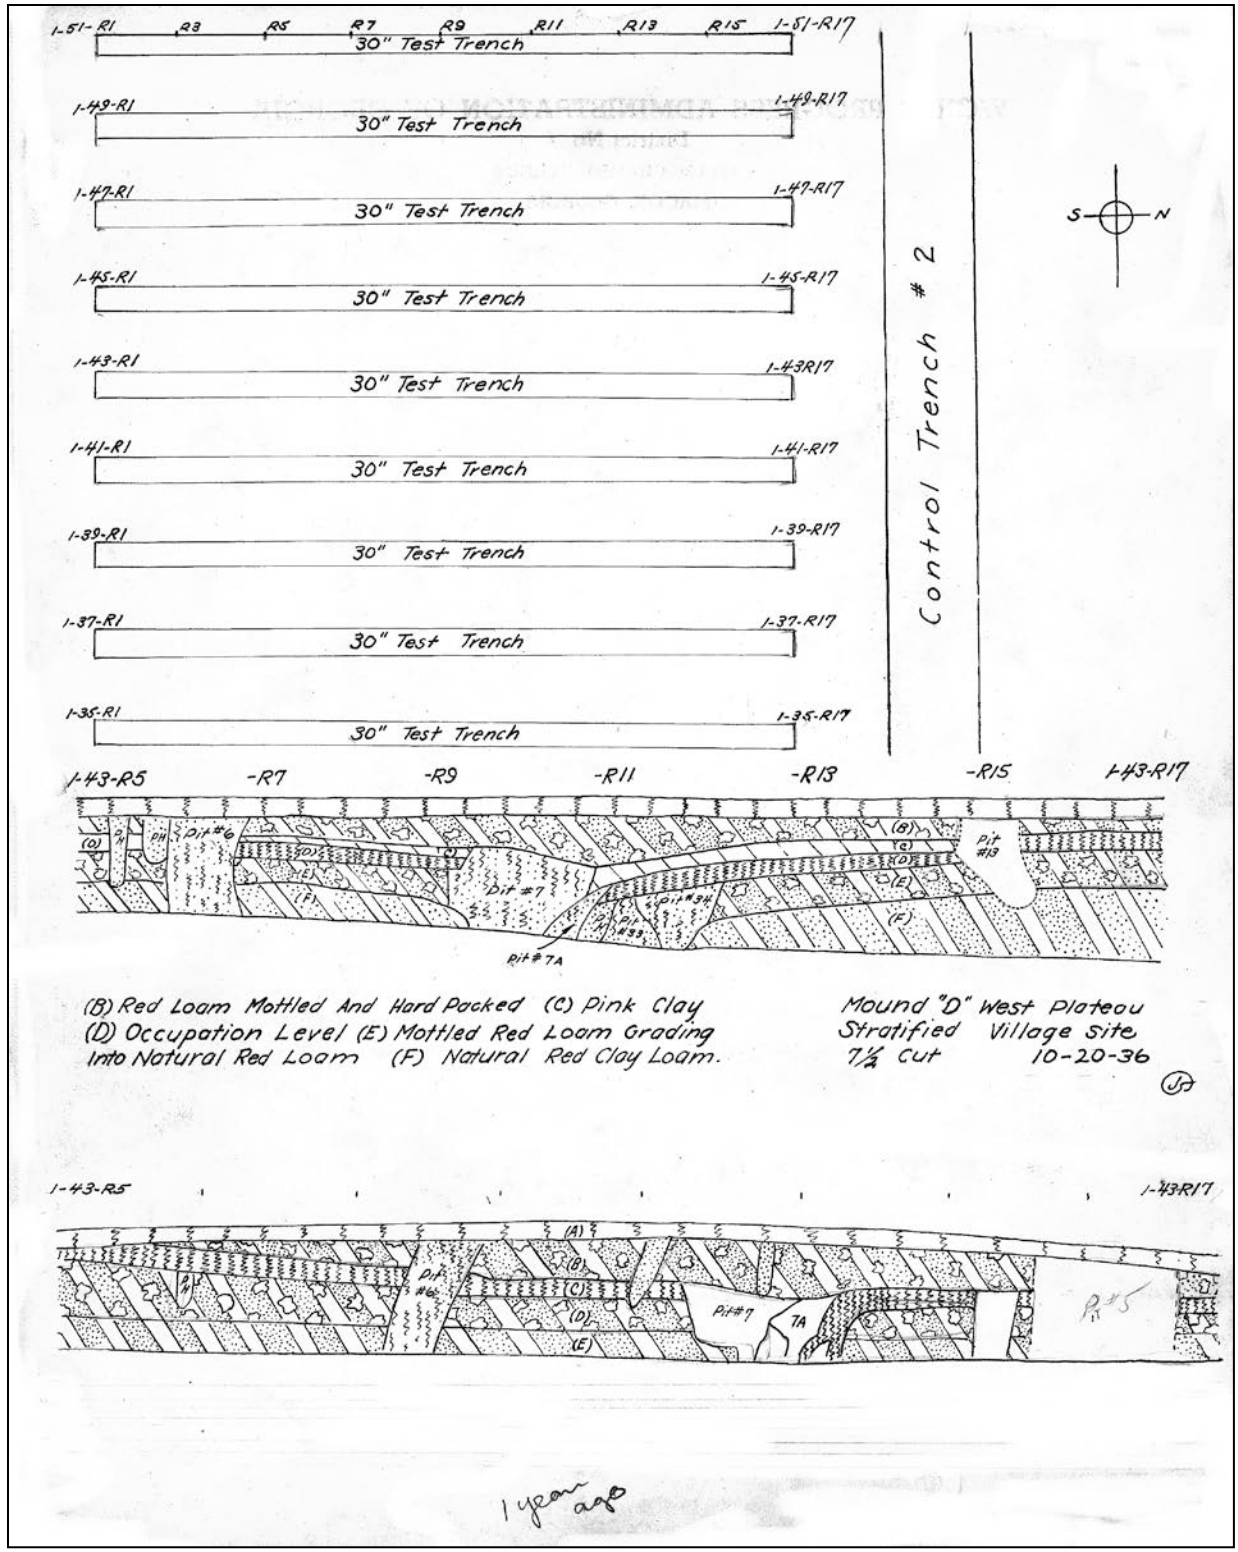 1-51-R1 R3 R5 R7 R9 R11 R13 R15 1-51-R17
30" Test Trench
1-49-R1 1-49-R17
30" Test Trench
1-47-R1 1-47-R17
30" Test Trench
1-45-R1 1-45-R17
30" Test Trench
1-43-R1 1-43R17
30" Test Trench
1-41-R1 1-41-R17
30" Test Trench
1-39-R1 1-39-R17
30" Test Trench
1-37-R1 1-37-R17
30" Test Trench
1-35-R1 1-35-R17
30" Test Trench
Control Trench # 2
S N
1-43-R5 -R7 -R9 -R11 -R13 -R15 1-43-R17
(D) PH PH Pit #6 (D) (E) (F) (C) Pit #7 PH Pit #33 Pit #34 (B) (C) (D) (E) (F) Pit #13
Pit # 7A
(B) Red Loam Mottled And Hard Packed (C) Pink Clay
(D) Occupation Level (E) Mottled Red Loam Grading
Into Natural Red Loam (F) Natural Red Clay Loam.
Mound "D" West Plateau
Stratified Village Site
7½ Cut 10-20-36
1-43-R5 1-43R17
(A)
PH Pit #6 (B) (C) (D) (E) Pit #7 7A Pit #5
1 year
ago